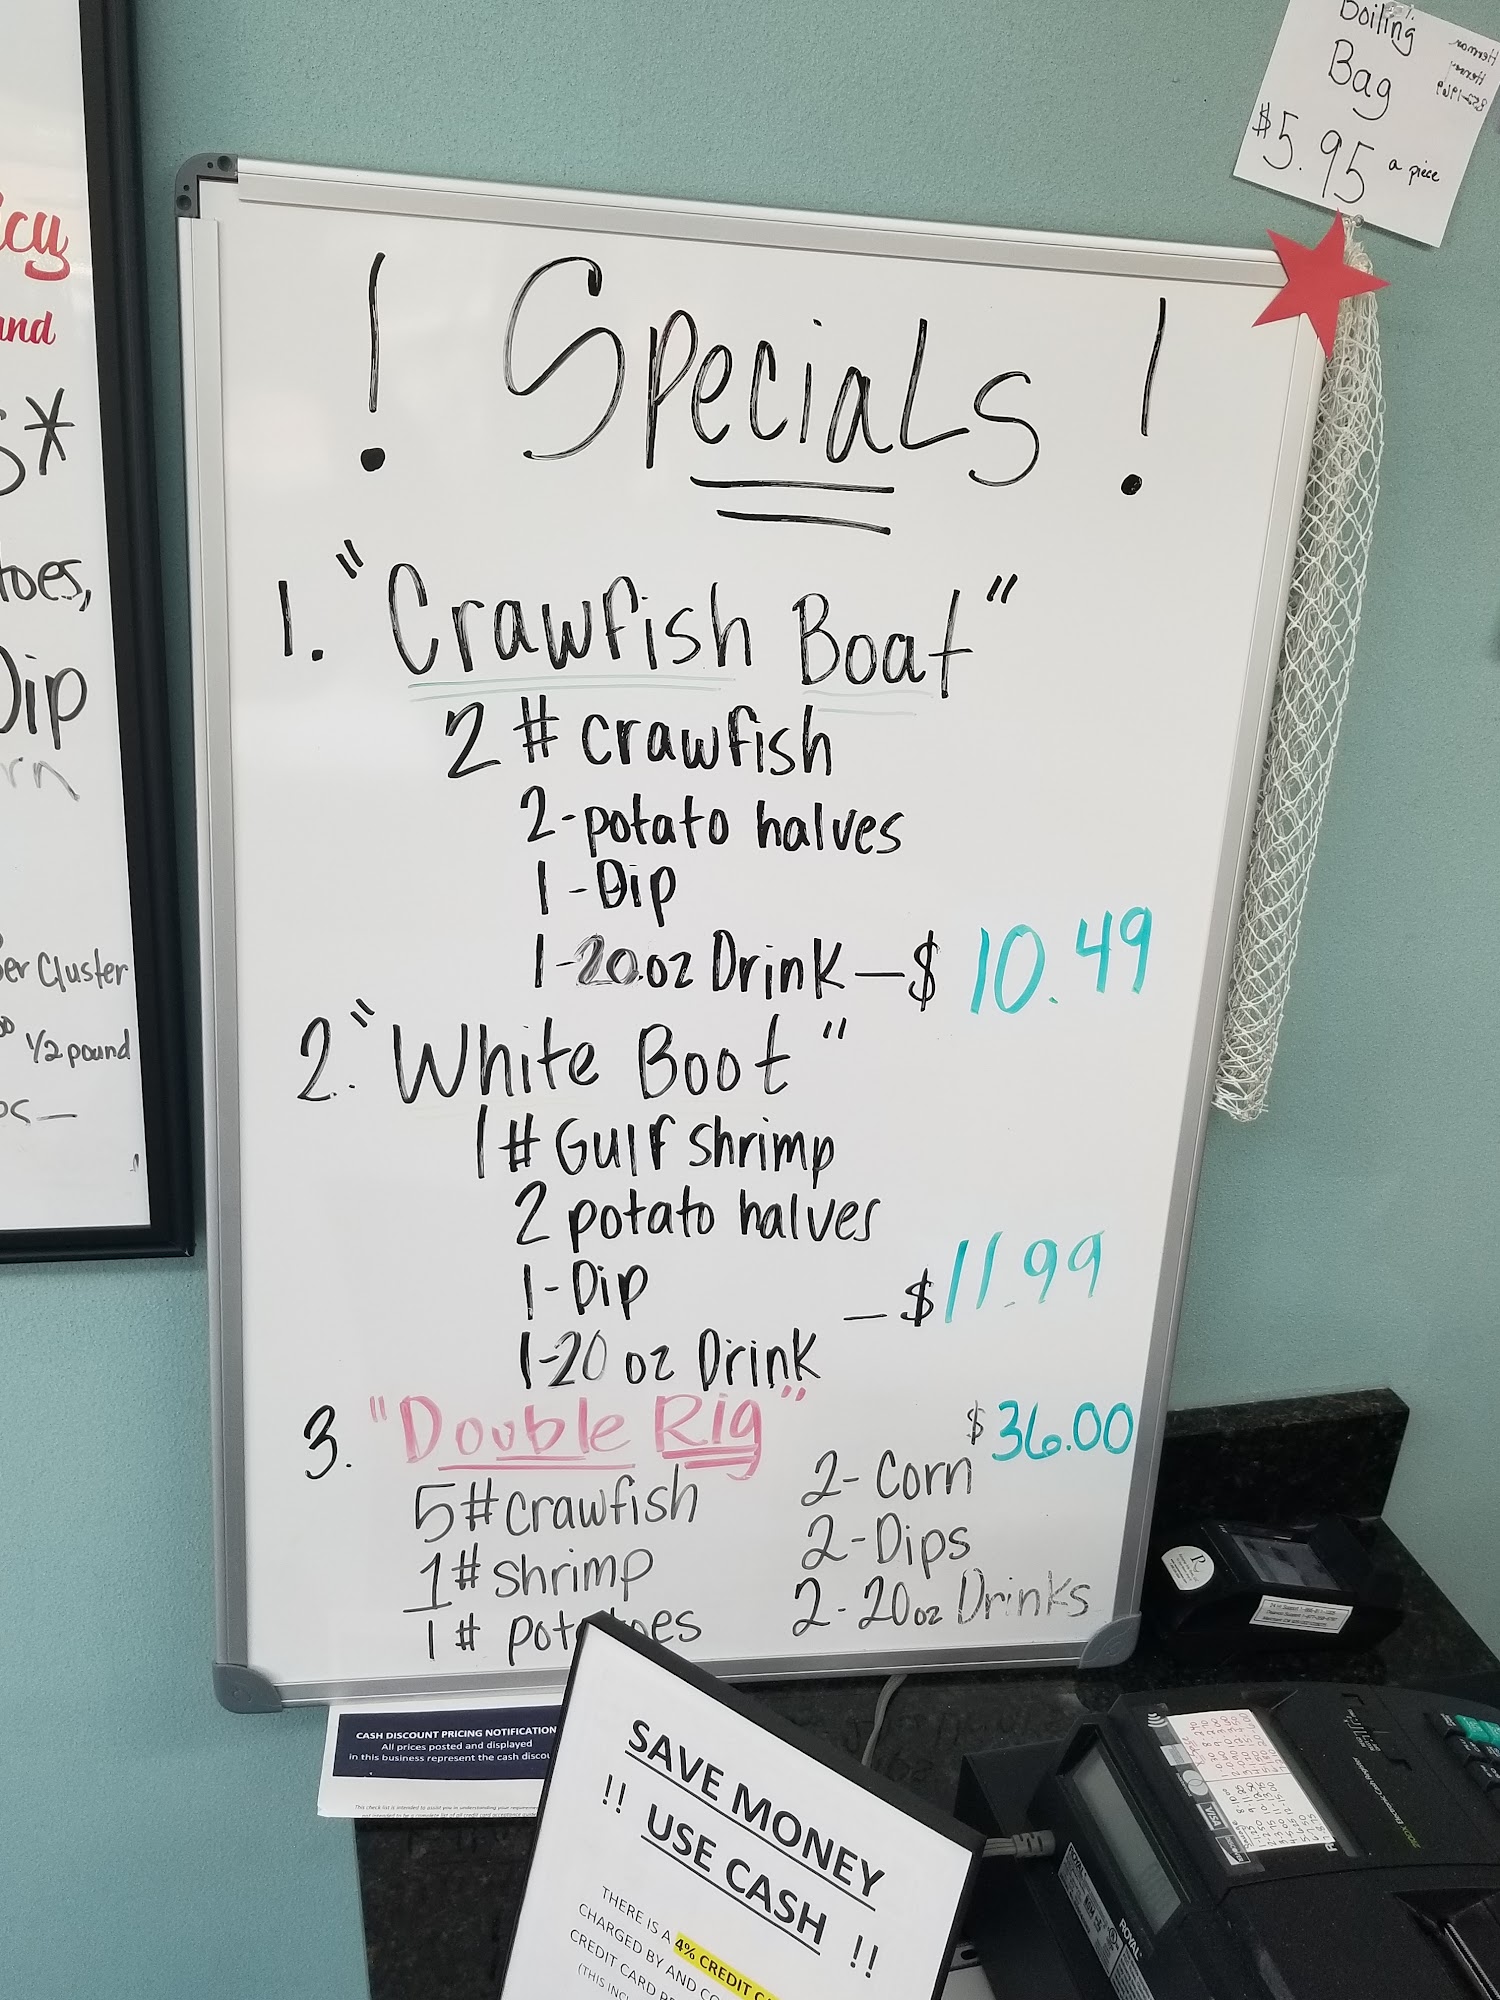 Boiling
Bag
$5.95 a piece
icy
and
s*
toes,
Dip
rn
per Cluster
1/2 pound
! Specials !
1. "Crawfish Boat"
2 # crawfish
2-potato halves
1-Dip
1-20 oz Drink — $ 10.49
2. "White Boot"
1 # Gulf shrimp
2 potato halves
1-Dip — $ 11.99
1-20 oz Drink
3. "Double Rig" $36.00
5# crawfish
1# shrimp
1# potatoes
2- Corn
2-Dips
2-20oz Drinks
CASH DISCOUNT PRICING NOTIFICATION
All prices posted and displayed
in this business represent the cash discou
SAVE MONEY
!! USE CASH !!
THERE IS A 4% CREDIT
CHARGED BY AND
CREDIT CARD
(THIS
ROYAL